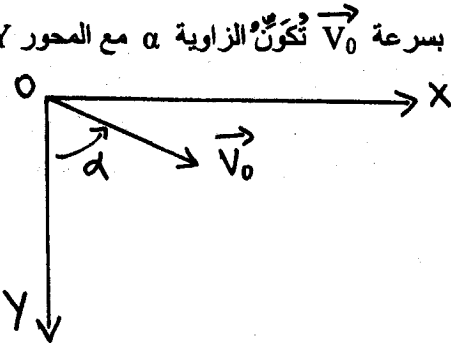 بسرعة V₀ تُكَوِّنُ الزاوية α مع المحور Y
O
X
α
V₀
Y